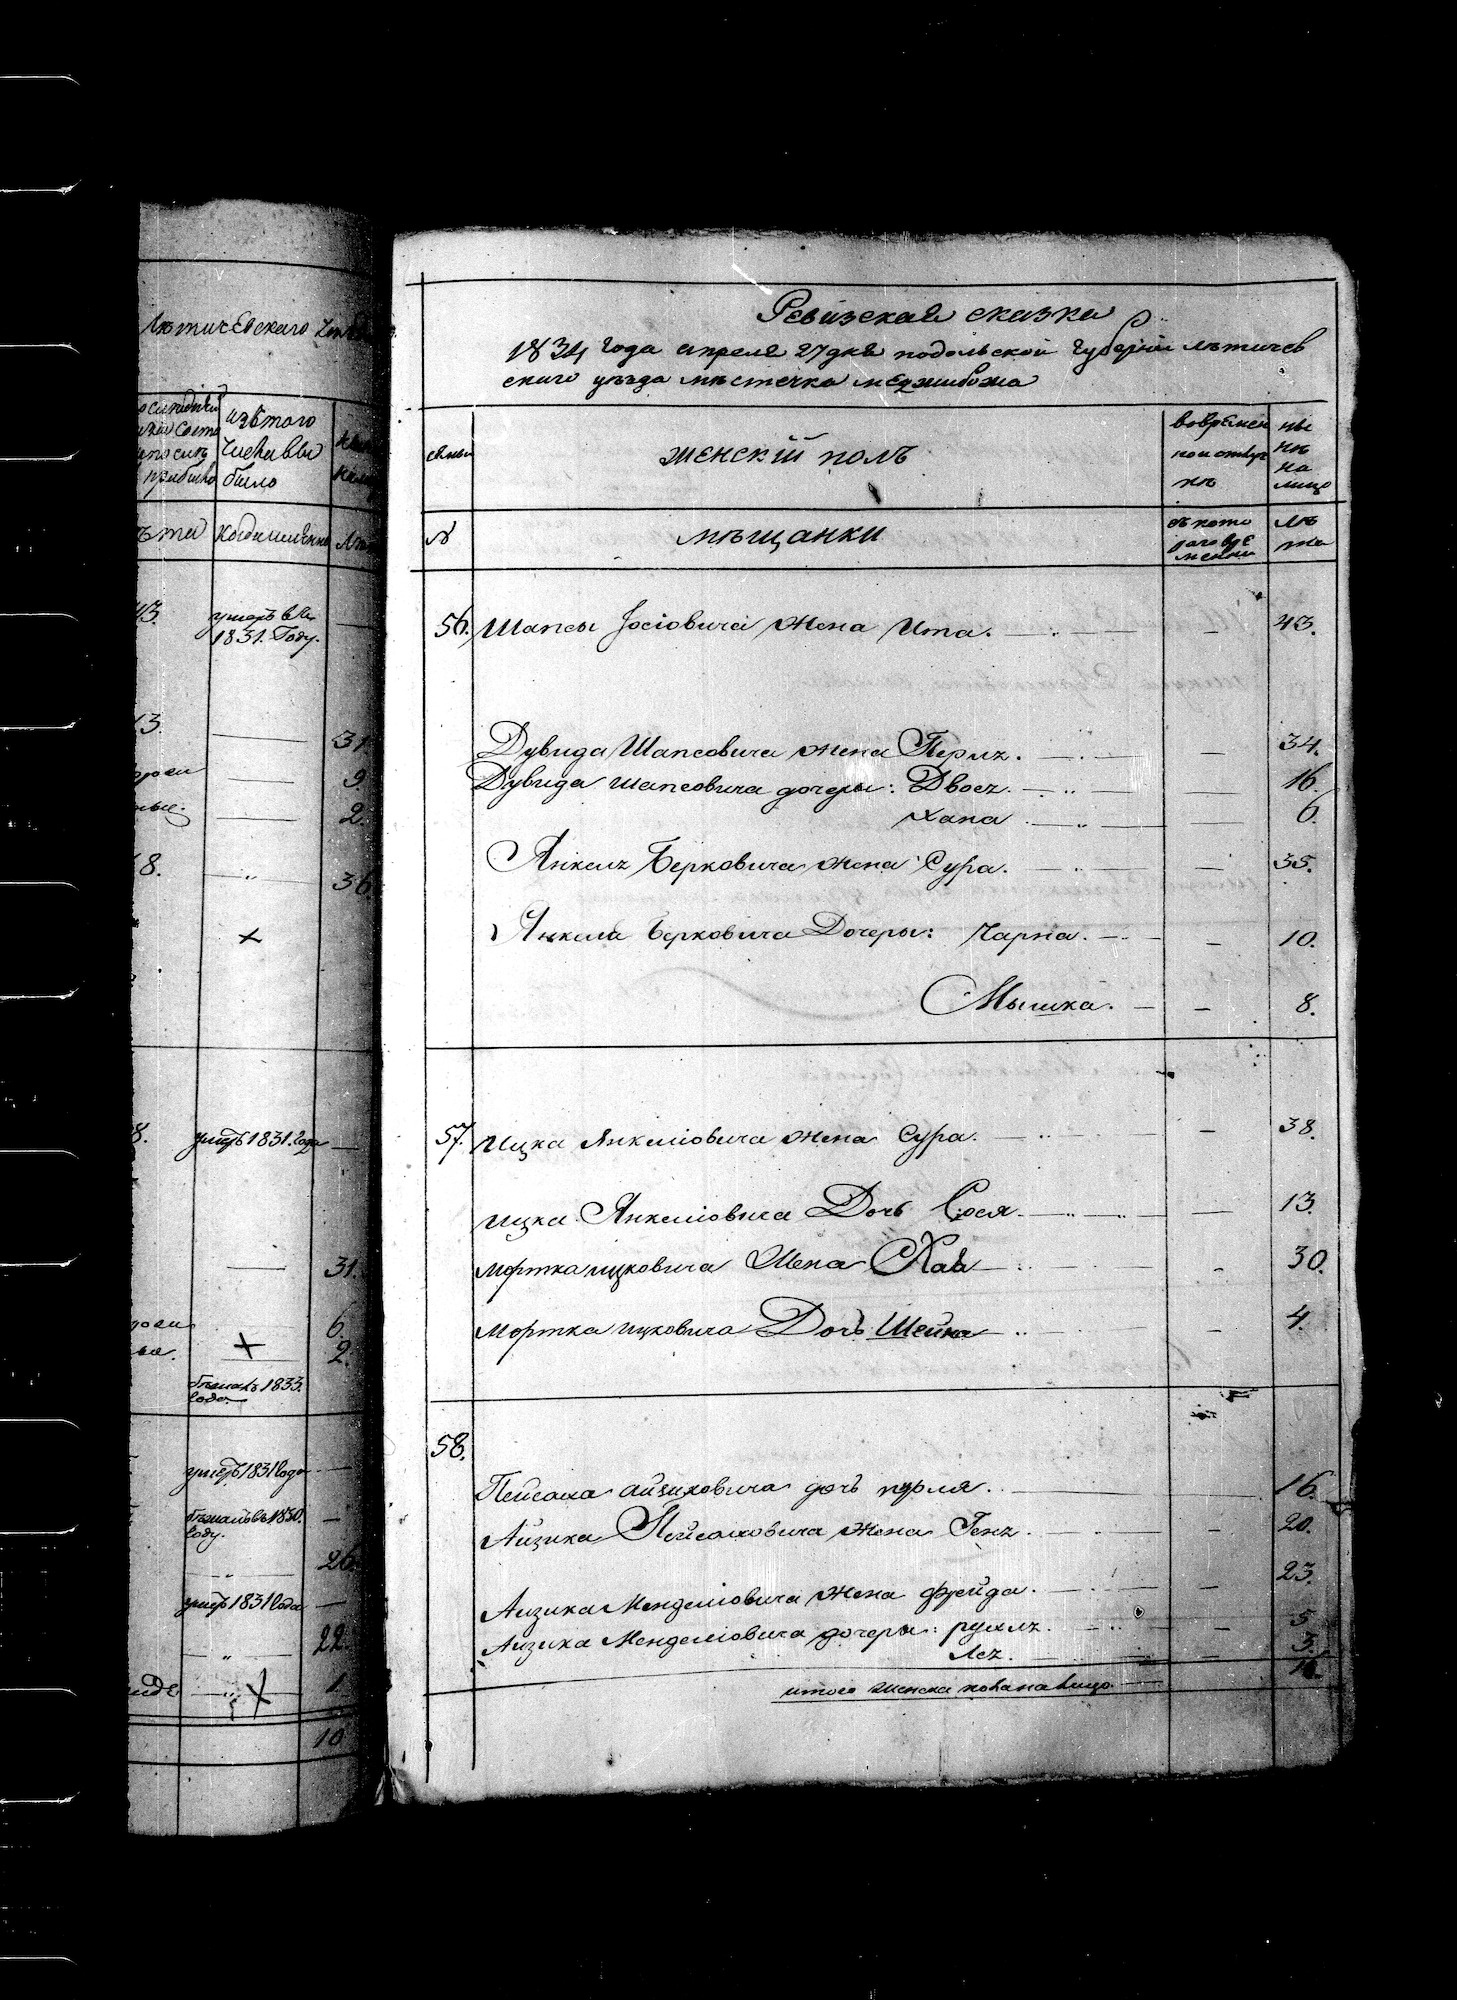 Лѣтичевскаго
изътого
числа вы
было
ѣта
когда именно
43.
умеръ въ
1831. Году.
13.
31
9.
2.
8.
36
умеръ 1831. года
31.
6.
2.
бѣжалъ 1833.
года.
умеръ 1831 года
бѣжалъ въ 1830.
году.
26
умеръ 1831 года
22
1
10
Ревизская сказка
1834 года апреля 27 дня подольской губерніи лѣтичев
скаго уѣзда мѣстечка меджибожа
семьи
женскій полъ
вовремен
ны
нѣ
на
лицо
№
мѣщанки
съ кото
раго вре
менни
лѣ
та
56. Шапсы Іосіовича жена Ита. — 43.
Дувида Шапсовича жена Перлъ. — 34.
Дувида шапсовича дочеры: Двося. — 16.
хана — 6.
Янкеля Берковича жена Сура. — 35.
Янкеля Берковича Дочеры: Чарна. — 10.
Мышка. — 8.
57. Ицка Янкеліовича жена Сура. — 38.
ицка Янкеліовича Дочь Сося. — 13.
мортка ицковича жена Хая — 30.
мортка ицковича Дочь Шейна — 4.
58.
Пейсаха айзиковича дочь перля. — 16.
Айзика Пейсаховича жена Геня. — 20.
Айзика Менделіовича жена фрейда. — 23.
Айзика Менделіовича дочеры: рухля. — 5
Лея. — 3.
итого женска пола налицо. 16